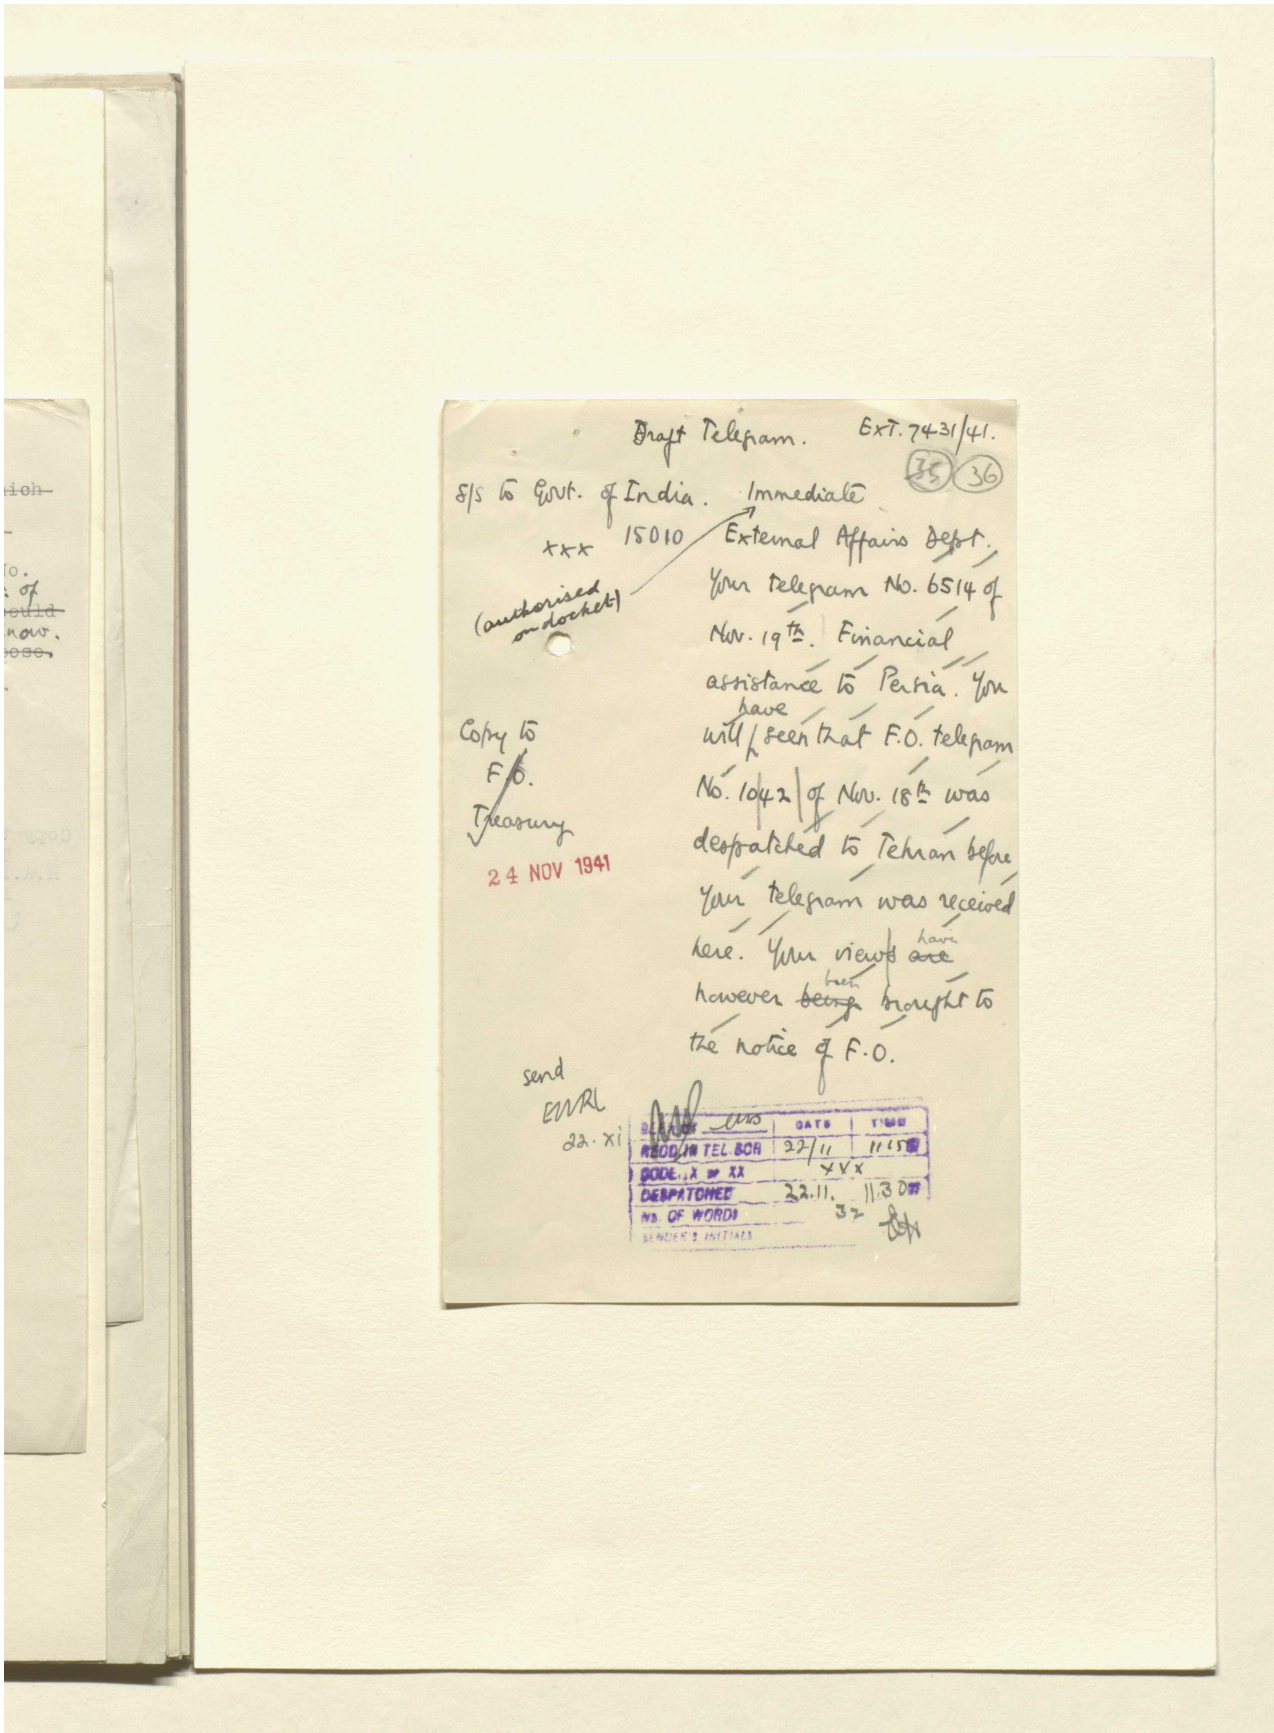 Draft Telegram. EXT. 7431/41.
35 36
S/S to Govt. of India. Immediate
xxx 15010 External Affairs Dept.
(authorised
on docket)
Your telegram No. 6514 of
Nov. 19th. Financial
assistance to Persia. You
have
will seen that F.O. telegram
No. 1042 of Nov. 18th was
despatched to Tehran before
your telegram was received
here. Your views are have
however being been brought to
the notice of F.O.
Copy to
F.O.
Treasury
24 NOV 1941
send
22.xi
DATE TIME
RECD IN TEL. BCH 22/11 1115
CODE, X or XX xxx
DESPATCHED 22.11. 11.30
NO. OF WORDS 32
SENDER'S INITIALS
ich
o.
of
ould
now.
pose.